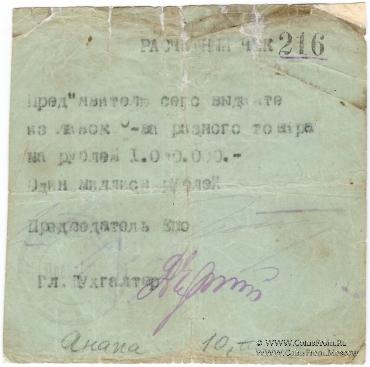 РАСЧЕТНЫЙ ЧЕК 216
Пред"явителю сего выдайте
из лавок О-ва разного товара
на рублей I.000.000.-
Один миллион рублей
Председатель
Гл. Бухгалтер
Анапа 10,
© www.CoinsFrom.Ru
© www.CoinsFrom.Moscow